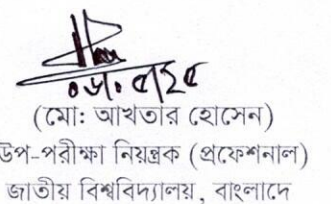 (মো: আখতার হোসেন)
উপ-পরীক্ষা নিয়ন্ত্রক (প্রফেশনাল)
জাতীয় বিশ্ববিদ্যালয়, বাংলাদে